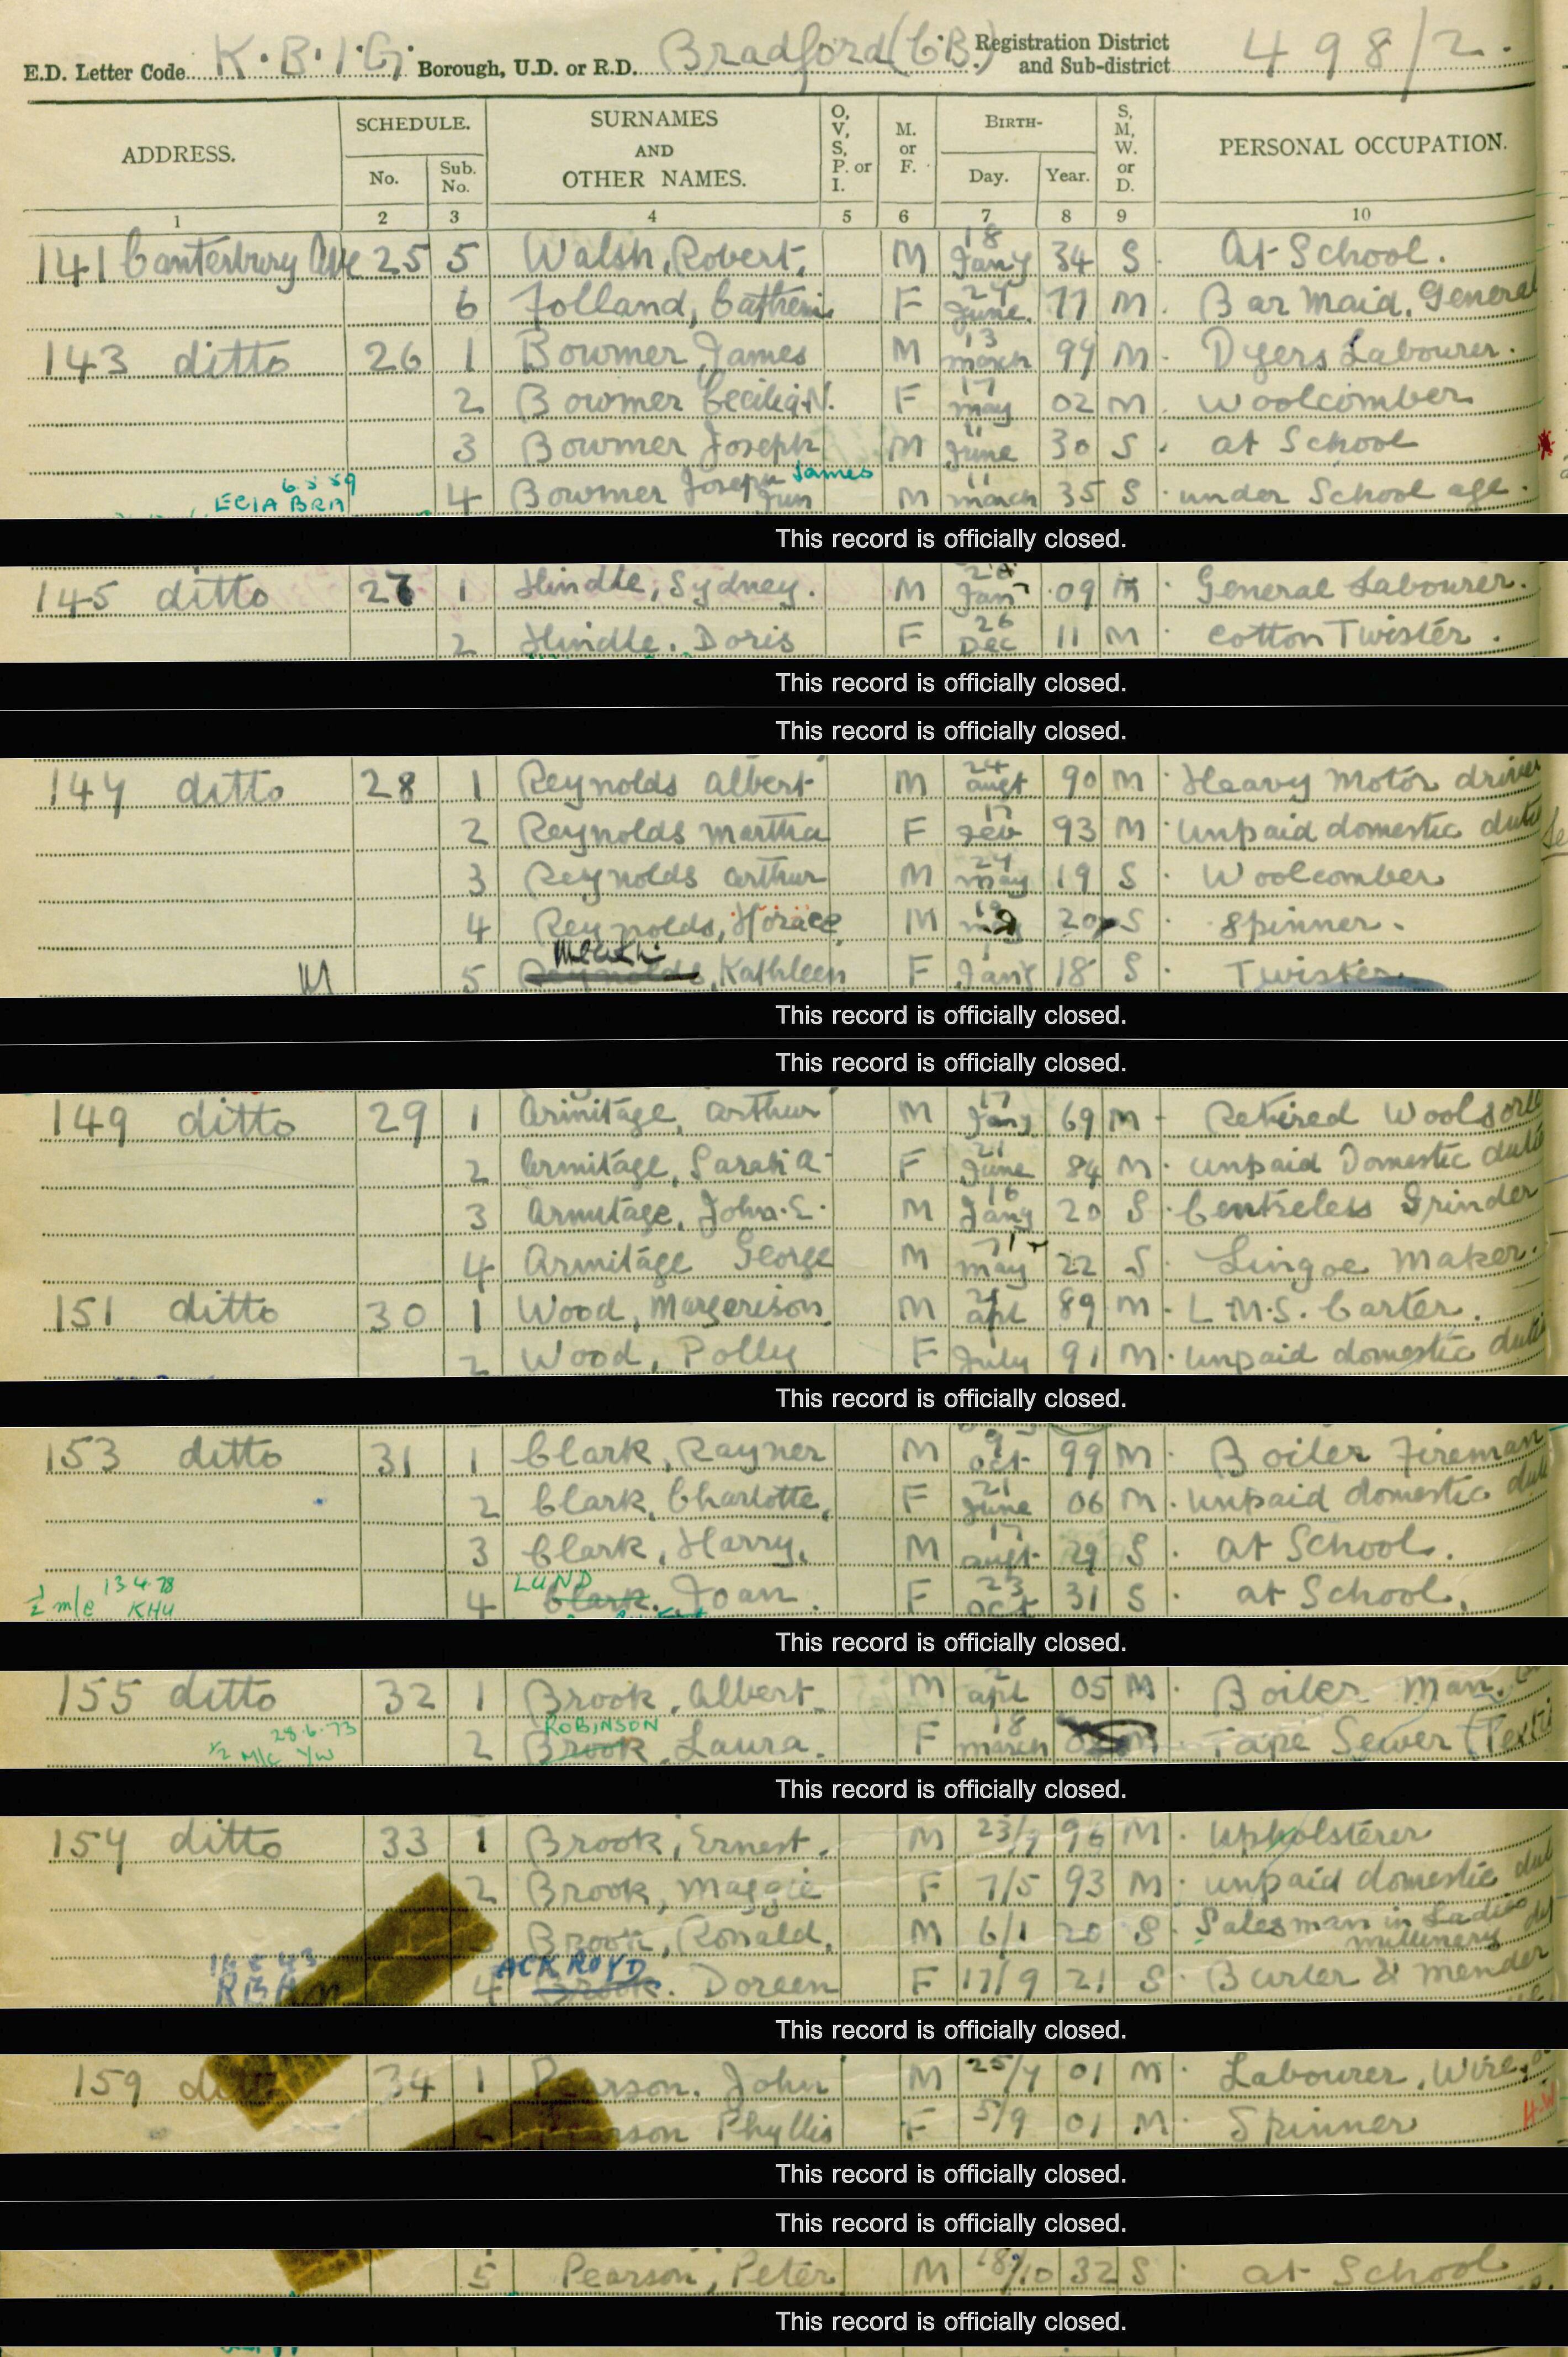 E.D. Letter Code K.B.I.G. Borough, U.D. or R.D. Bradford (C.B.) Registration District and Sub-district 498/2.
ADDRESS. SCHEDULE. No. Sub. No. SURNAMES AND OTHER NAMES. O, V, S, P. or I. M. or F. BIRTH- Day. Year. S, M, W. or D. PERSONAL OCCUPATION.
1 2 3 4 5 6 7 8 9 10
141 Canterbury Ave 25 5 Walsh, Robert, M 18 Jany 34 S. At School.
6 Folland, F June. 11 M. Bar Maid, General
143 ditto 26 1 Bowmer, James M 13 march 99 M. Dyers Labourer.
2 Bowmer Cecilia N. F 17 may 02 M. Woolcomber
3 Bowmer Joseph M 11 June 30 S. at School
ECIA BRA 4 Bowmer Joseph Jun James M 11 march 35 S. under School age.
This record is officially closed.
145 ditto 27 1 Hindle, Sydney. M Jan 09 M. General Labourer.
2 Hindle. Doris F 26 Dec 11 M. Cotton Twister.
This record is officially closed.
This record is officially closed.
147 ditto 28 1 Reynolds Albert M 24 augt 90 M. Heavy Motor driver
2 Reynolds Martha F 17 Feb 93 M. unpaid domestic duties
3 Reynolds arthur M 24 may 19 S. Woolcomber
4 Reynolds, Horace, M 20 S. Spinner.
M 5 Reynolds, Kathleen F 1 Jany 18 S. Twister.
This record is officially closed.
This record is officially closed.
149 ditto 29 1 Armitage, Arthur M 17 Jany 69 M. Retired Woolsorter
2 Armitage, Sarah A. F 21 June 84 M. unpaid Domestic duties
3 Armitage, John. E. M 16 Jany 20 S. Centreless Grinder
4 Armitage George M may 22 S. Lingoe Maker.
151 ditto 30 1 Wood, Margerison M 21 apl 89 M. L.M.S. Carter.
2 Wood, Polly F July 91 M. unpaid domestic duties
This record is officially closed.
153 ditto 31 1 Clark, Rayner M 9 Oct 99 M. Boiler Fireman
2 Clark, Charlotte, F 21 June 06 M. unpaid domestic
3 Clark, Harry, M 17 augt 29 S. at School.
½ m/e 13.4.78 KHU 4 LUND Clark. Joan. F 23 Oct 31 S. at School.
This record is officially closed.
155 ditto 32 1 Brook, Albert M 2 apl 05 M. Boiler Man.
½ M/c 28.6.73 YW 2 ROBINSON Brook, Laura. F 18 march M Tape Sewer (Texti
This record is officially closed.
157 ditto 33 1 Brook, Ernest. M 23/7 96 M. Upholsterer
2 Brook, Maggie F 7/5 93 M. unpaid domestic
Brook, Ronald, M 6/1 20 S. Salesman in Ladies millinery
4 ACKROYD Brook. Doreen F 17/9 21 S. Burler & Mender
This record is officially closed.
159 ditto 34 1 Pearson. John M 25/7 01 M. Labourer, Wire,
rson Phyllis F 5/9 01 M. Spinner
This record is officially closed.
This record is officially closed.
5 Pearson, Peter M 18/10 32 S. at School
This record is officially closed.